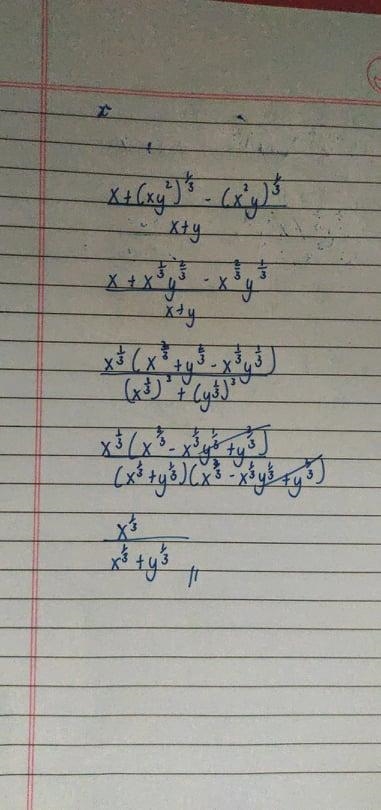 x
x+(xy²)^⅓ - (x²y)^⅓
x+y
x + x^⅓y^⅔ - x^⅔y^⅓
x+y
x^⅓(x^⅔+y^⅔-x^⅓y^⅓)
(x^⅓)³ + (y^⅓)³
x^⅓(x^⅔-x^⅓y^⅓+y^⅔)
(x^⅓+y^⅓)(x^⅔-x^⅓y^⅓+y^⅔)
x^⅓
x^⅓+y^⅓ //